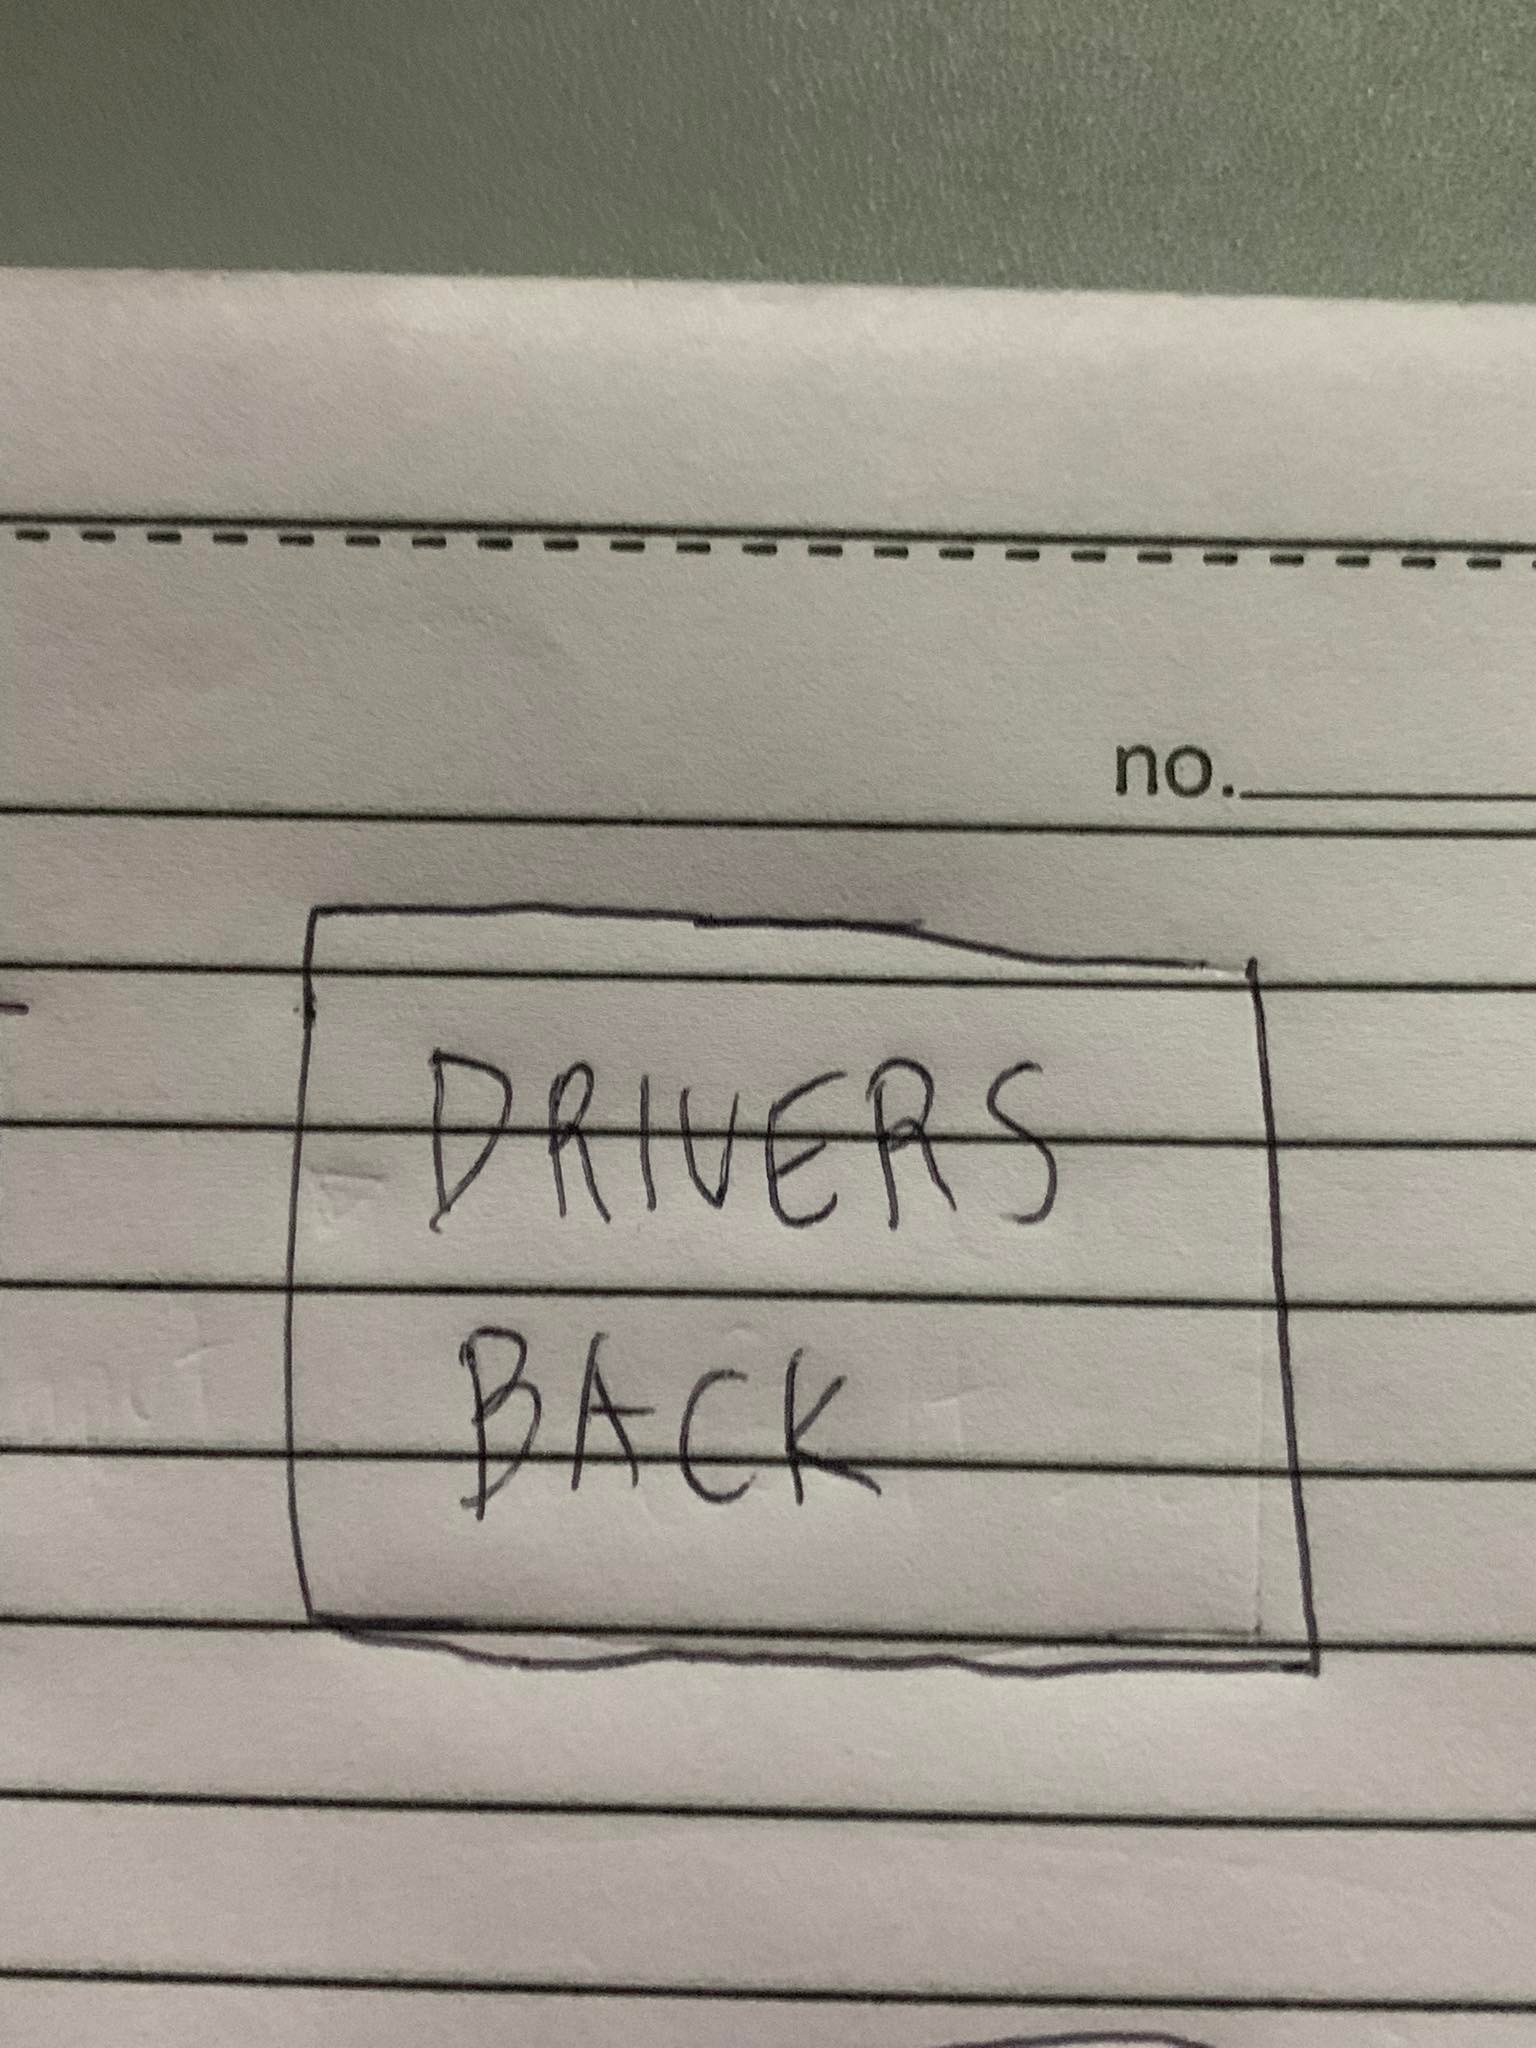 no.
DRIVERS
BACK